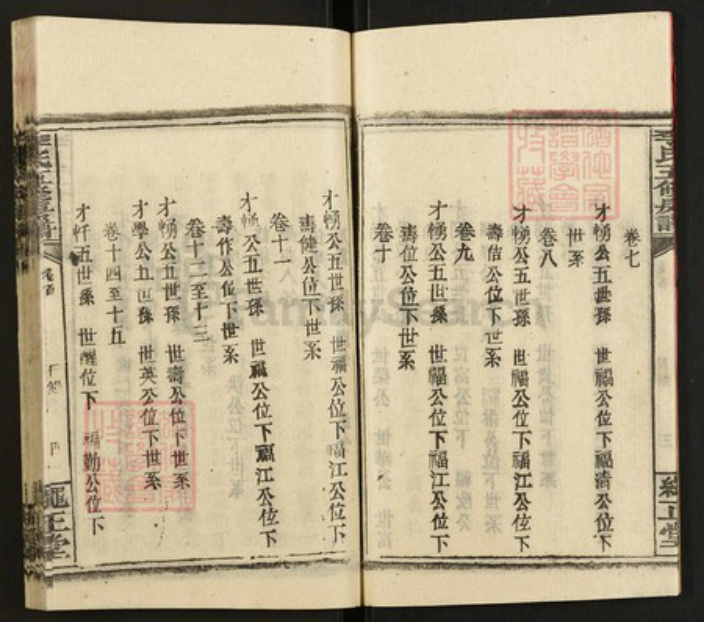 卷七
才㥥公五世孫 世福公位下福清公位下
世系
卷八
才㥥公五世孫 世福公位下福江公位下
壽佶公位下世系
卷九
才㥥公五世孫 世福公位下福江公位下
壽位公位下世系
卷十
才㥥公五世孫 世福公位下福江公位下
壽健公位下世系
卷十一
才㥥公五世孫 世福公位下福江公位下
壽作公位下世系
卷十二至十三
才㥥公五世孫 世壽公位下世系
才學公五世孫 世英公位下世系
卷十四至十五
才軒五世孫 世醒位下 福勤公位下
卷首
繩正堂
FamilySearch